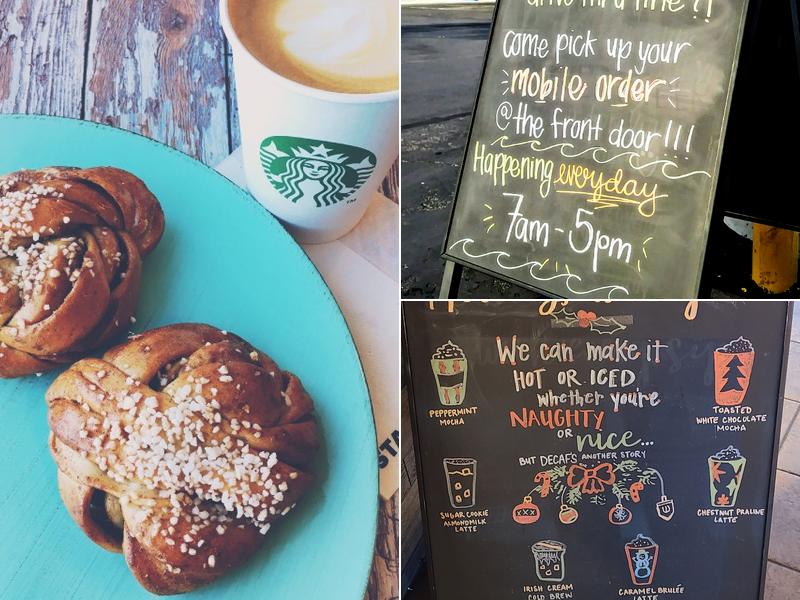 TM
STA
drive thru line?!
come pick up your
mobile order
@the front door!!!
Happening everyday
7am-5pm
We can make it
HOT OR ICED
whether you're
NAUGHTY
OR nice...
BUT DECAF'S ANOTHER STORY
PEPPERMINT
MOCHA
TOASTED
WHITE CHOCOLATE
MOCHA
SUGAR COOKIE
ALMONDMILK
LATTE
CHESTNUT PRALINE
LATTE
IRISH CREAM
COLD BREW
CARAMEL BRULÉE
LATTE